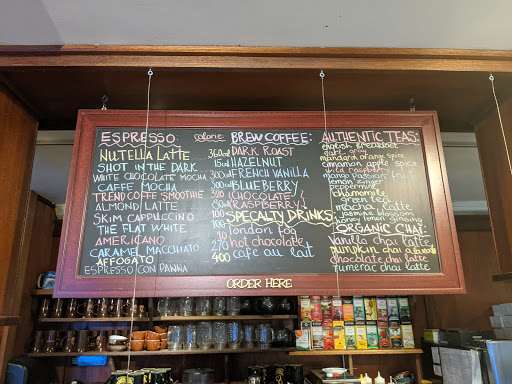 ESPRESSO:
NUTELLA LATTE
SHOT IN THE DARK
WHITE CHOCOLATE MOCHA
CAFFE MOCHA
TREND COFFE SMOOTHIE
ALMOND LATTE
SKIM CAPPUCCINO
THE FLAT WHITE
AMERICANO
CARAMEL MACCHIATO
AFFOGATO
ESPRESSO CON PANNA
calorie:
360ml
15
300
300
310
80
100
100
10
270
400
BREW COFFEE:
DARK ROAST
HAZELNUT
FRENCH VANILLA
BLUEBERRY
CHOCOLATE
RASPBERRY
SPECIALTY DRINKS:
london fog
hot chocolate
cafe au lait
AUTHENTIC TEAS:
english breakfast
earl grey
mandarin orange spice
cinnamon apple spice
wild raspberry
mango passion fruit
lemon zinger
peppermint
chamomile
green tea
matcha latte
jasmine blossom
honey lemon ginseng
ORGANIC CHAI:
Vanilla chai latte
PUMPKIN chai
chocolate chai latte
tumerac chai latte
ORDER HERE